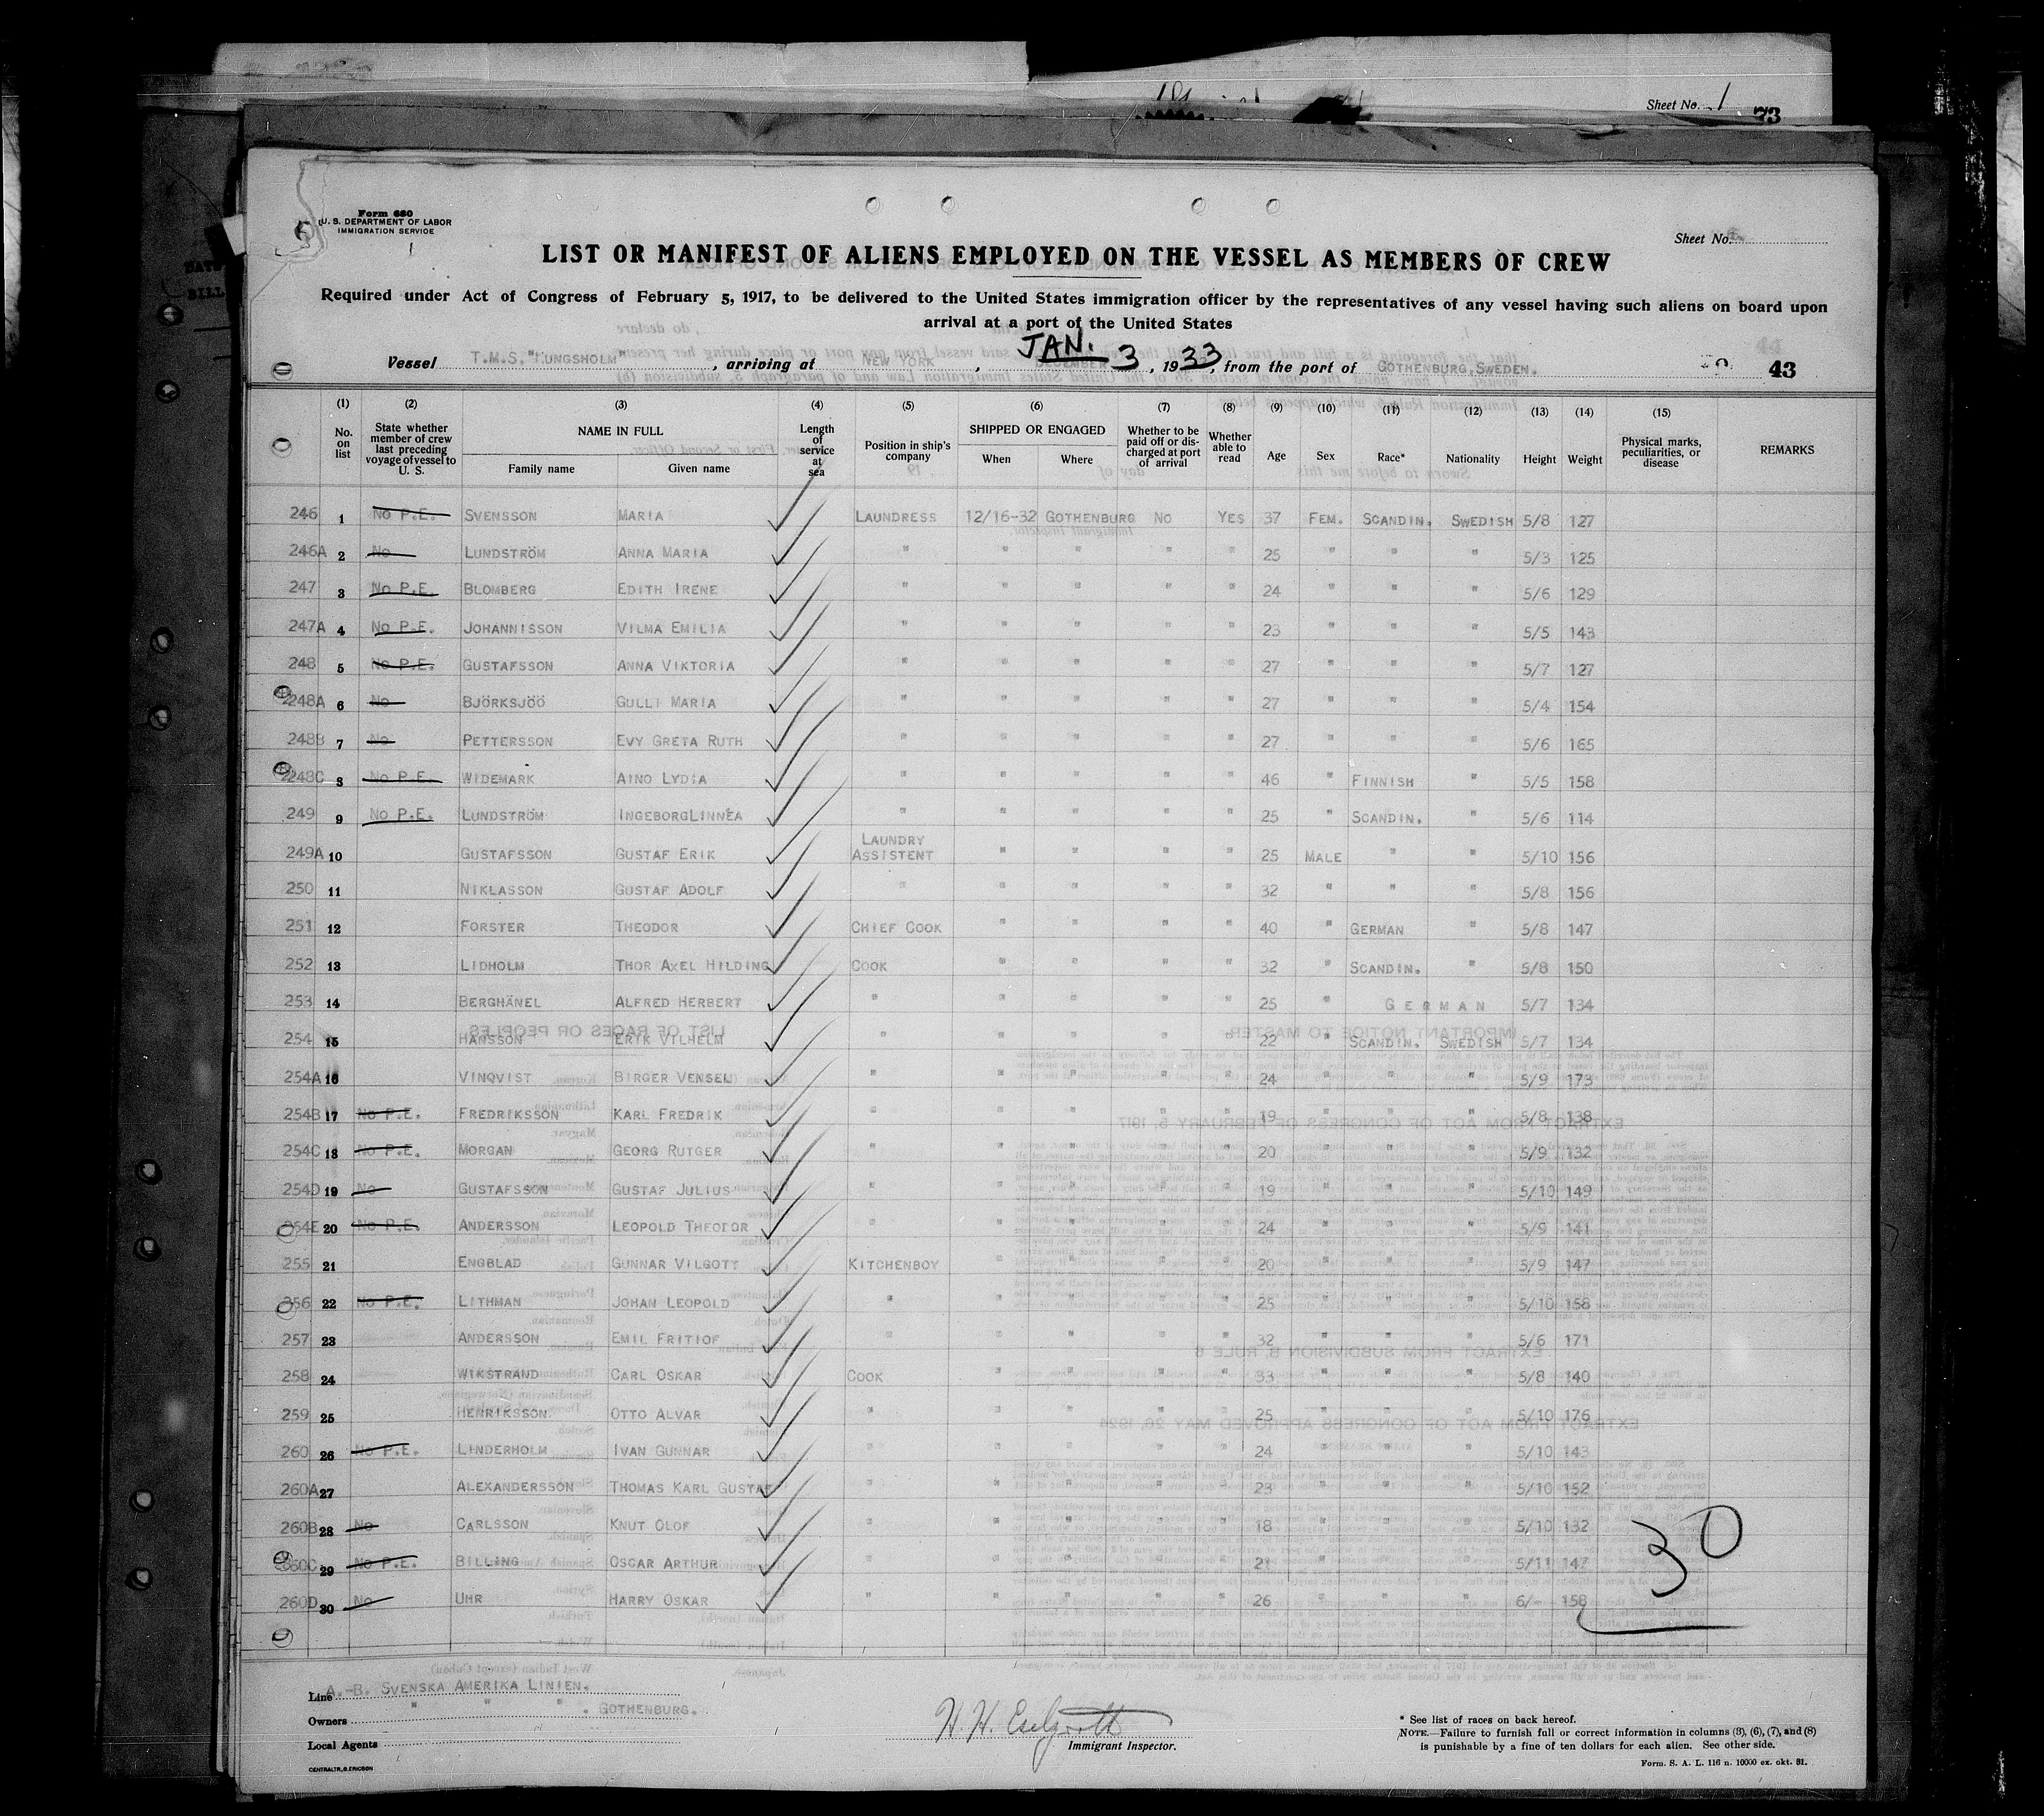 Sheet No. 1
73
Form 680
U. S. DEPARTMENT OF LABOR
IMMIGRATION SERVICE
Sheet No.
LIST OR MANIFEST OF ALIENS EMPLOYED ON THE VESSEL AS MEMBERS OF CREW
Required under Act of Congress of February 5, 1917, to be delivered to the United States immigration officer by the representatives of any vessel having such aliens on board upon
arrival at a port of the United States
Vessel T.M.S. "KUNGSHOLM", arriving at NEW YORK, DECEMBER JAN. 3, 1933, from the port of GOTHENBURG, SWEDEN. 43
(1) (2) (3) (4) (5) (6) (7) (8) (9) (10) (11) (12) (13) (14) (15)
No. on list State whether member of crew last preceding voyage of vessel to U. S. NAME IN FULL Family name Given name Length of service at sea Position in ship's company SHIPPED OR ENGAGED When Where Whether to be paid off or discharged at port of arrival Whether able to read Age Sex Race* Nationality Height Weight Physical marks, peculiarities, or disease REMARKS
246 1 No P.E. SVENSSON MARIA LAUNDRESS 12/16-32 GOTHENBURG NO YES 37 FEM. SCANDIN. SWEDISH 5/8 127
246A 2 No LUNDSTRÖM ANNA MARIA " " " " " 25 " " " 5/3 125
247 3 No P.E. BLOMBERG EDITH IRENE " " " " " 24 " " " 5/6 129
247A 4 No P.E. JOHANNISSON VILMA EMILIA " " " " " 23 " " " 5/5 143
248 5 No P.E. GUSTAFSSON ANNA VIKTORIA " " " " " 27 " " " 5/7 127
248A 6 No BJÖRKSJÖÖ GULLI MARIA " " " " " 27 " " " 5/4 154
248B 7 No PETTERSSON EVY GRETA RUTH " " " " " 27 " " " 5/6 165
248C 8 No P.E. WIDEMARK AINO LYDIA " " " " " 46 " FINNISH " 5/5 158
249 9 No P.E. LUNDSTRÖM INGEBORG LINNÉA " " " " " 25 " SCANDIN. " 5/6 114
249A 10 GUSTAFSSON GUSTAF ERIK LAUNDRY ASSISTENT " " " " 25 MALE " " 5/10 156
250 11 NIKLASSON GUSTAF ADOLF " " " " " 32 " " " 5/8 156
251 12 FORSTER THEODOR CHIEF COOK " " " " 40 " GERMAN " 5/8 147
252 13 LIDHOLM THOR AXEL HILDING COOK " " " " 32 " SCANDIN. " 5/8 150
253 14 BERGHÄNEL ALFRED HERBERT " " " " " 25 " GERMAN 5/7 134
254 15 HANSSON ERIK VILHELM " " " " " 22 " SCANDIN. SWEDISH 5/7 134
254A 16 VINQVIST BIRGER VENSEL " " " " " 24 " " " 5/9 173
254B 17 No P.E. FREDRIKSSON KARL FREDRIK " " " " " 19 " " " 5/8 138
254C 18 No P.E. MORGAN GEORG RUTGER " " " " " 20 " " " 5/9 132
254D 19 No GUSTAFSSON GUSTAF JULIUS " " " " " 19 " " " 5/10 149
254E 20 No P.E. ANDERSSON LEOPOLD THEODOR " " " " " 24 " " " 5/9 141
255 21 ENGBLAD GUNNAR VILGOTT KITCHENBOY " " " " 20 " " " 5/9 147
256 22 No P.E. LITHMAN JOHAN LEOPOLD " " " " " 25 " " " 5/10 158
257 23 ANDERSSON EMIL FRITIOF " " " " " 32 " " " 5/6 171
258 24 WIKSTRAND CARL OSKAR COOK " " " " 33 " " " 5/8 140
259 25 HENRIKSSON OTTO ALVAR " " " " " 25 " " " 5/10 176
260 26 No P.E. LINDERHOLM IVAN GUNNAR " " " " " 24 " " " 5/10 143
260A 27 ALEXANDERSSON THOMAS KARL GUSTAF " " " " " 23 " " " 5/10 152
260B 28 No CARLSSON KNUT OLOF " " " " " 18 " " " 5/10 132
260C 29 No P.E. BILLING OSCAR ARTHUR " " " " " 21 " " " 5/11 147
260D 30 No UHR HARRY OSKAR " " " " " 26 " " " 6/- 158
30
Line A.-B. SVENSKA AMERIKA LINIEN.
Owners " " " . GOTHENBURG.
Local Agents
CENTRALTR., G. ERICSON
Immigrant Inspector.
* See list of races on back hereof.
NOTE.—Failure to furnish full or correct information in columns (3), (6), (7), and (8)
is punishable by a fine of ten dollars for each alien. See other side.
Form. S. A. L. 116 n. 10000 ex. okt. 31.